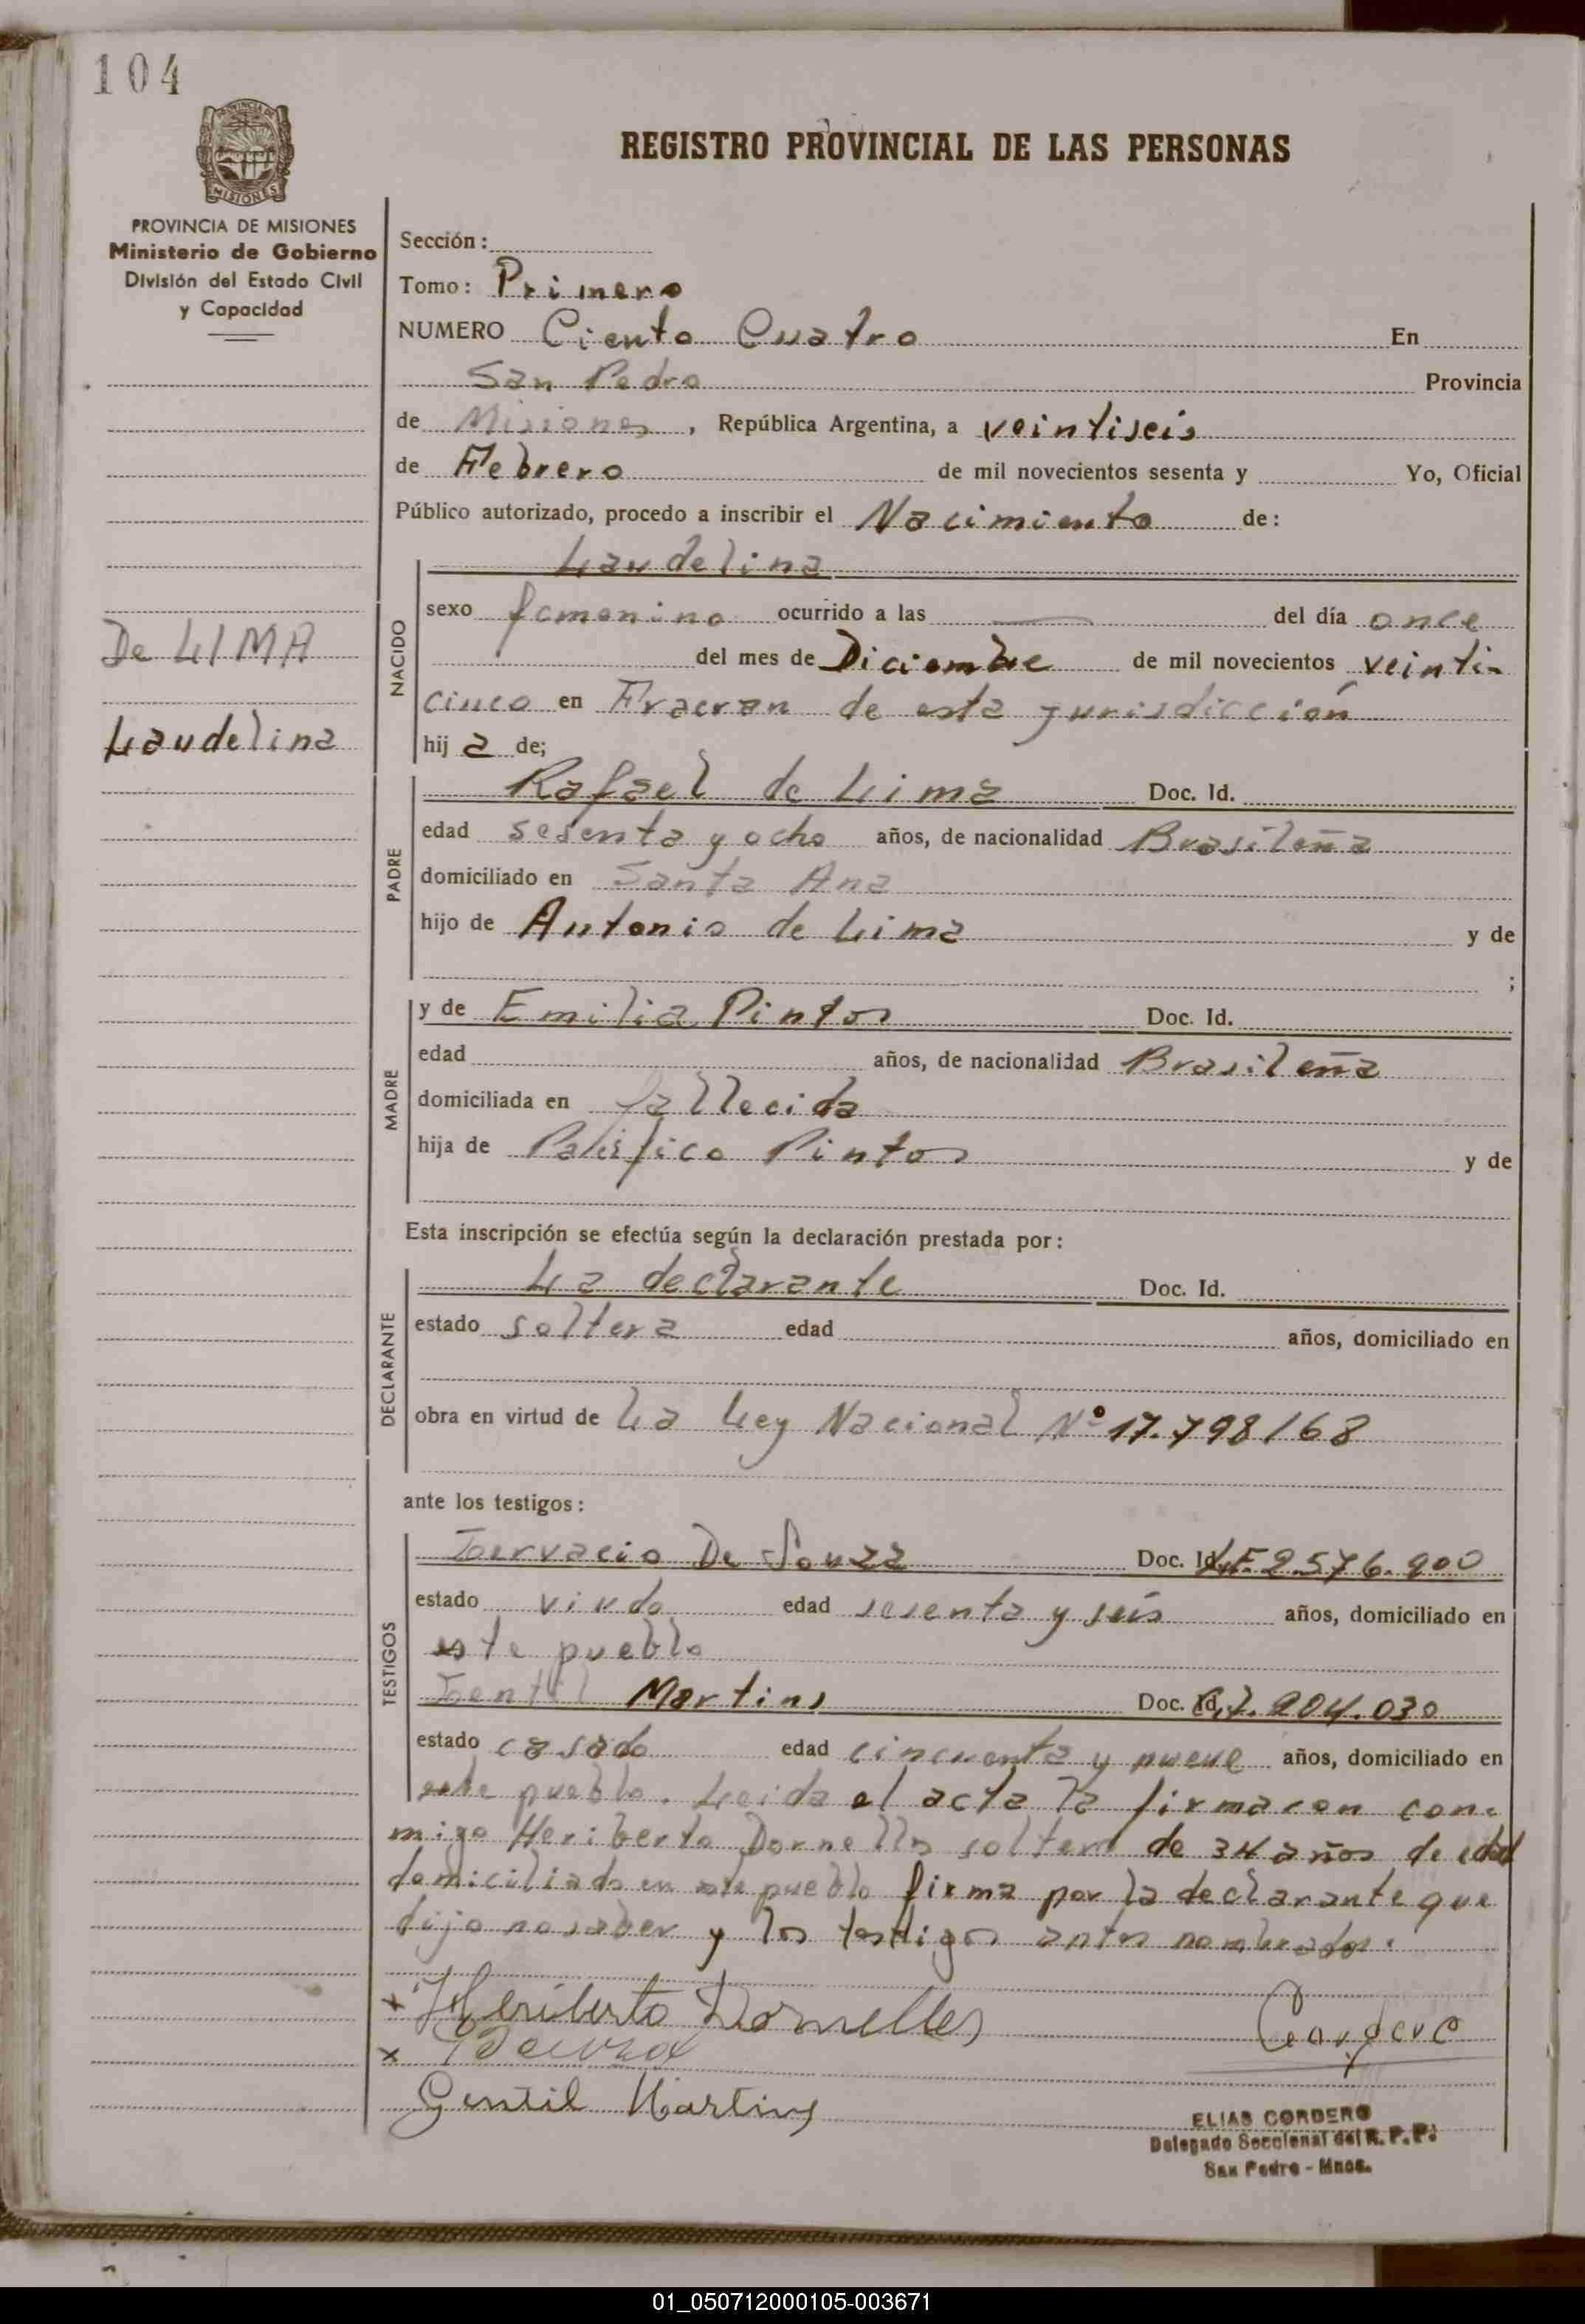 104
PROVINCIA DE MISIONES
Ministerio de Gobierno
División del Estado Civil
y Capacidad
REGISTRO PROVINCIAL DE LAS PERSONAS
Sección:
Tomo: Primero
NUMERO Ciento Cuatro En
San Pedro Provincia
de Misiones, República Argentina, a veintiseis
de Febrero de mil novecientos sesenta y Yo, Oficial
Público autorizado, procedo a inscribir el Nacimiento de:
Laudelina
NACIDO
sexo femenino ocurrido a las — del día once
del mes de Diciembre de mil novecientos veinti-
cinco en Fracran de esta jurisdicción
hij a de;
De LIMA
Laudelina
PADRE
Rafael de Lima Doc. Id.
edad sesenta y ocho años, de nacionalidad Brasileña
domiciliado en Santa Ana
hijo de Antonio de Lima y de
;
MADRE
y de Emilia Pintos Doc. Id.
edad años, de nacionalidad Brasileña
domiciliada en fallecida
hija de Pintos y de
Esta inscripción se efectúa según la declaración prestada por:
DECLARANTE
La declarante Doc. Id.
estado soltera edad años, domiciliado en
obra en virtud de La Ley Nacional Nº 17.798/68
ante los testigos:
TESTIGOS
De Souza Doc. Id.
estado viudo edad sesenta y seis años, domiciliado en
este pueblo
Gentil Martins Doc. Id.
estado casado edad cincuenta y nueve años, domiciliado en
este pueblo. Leida el acta la firmaron con-
migo Heriberto Dornelles soltero de 34 años de edad
domiciliado en este pueblo firma por la declarante que
dijo no saber y los testigos antes nombrados.
x Heriberto Dornelles
x
Cordero
Gentil Martins
ELIAS CORDERO
Delegado Seccional del R. P. P.
San Pedro - Mnes.
01_050712000105-003671